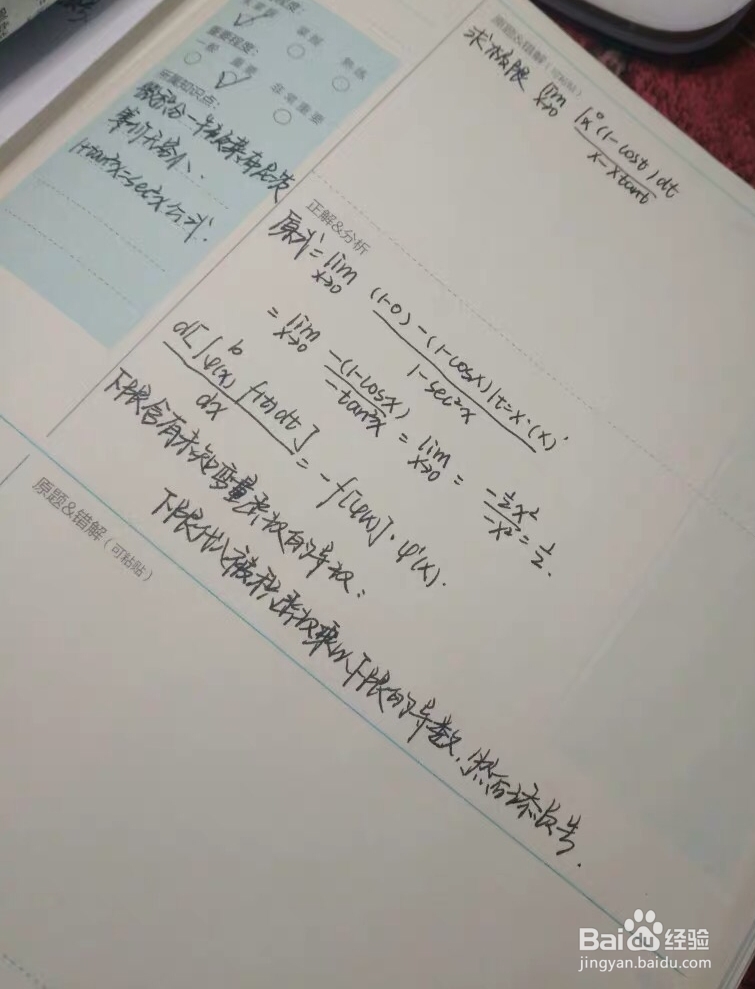 重要程度:
一般 重要 非常重要
掌握 熟练
所属知识点:
等价无穷小、
1+tan²x=sec²x公式.
原题&错解(可粘贴)
求极限 lim x→0 ∫x^0 (1-cost)dt / x-xtant
正解&分析
原式=lim x→0 (1-0)-(1-cosx)|t=x·(x)' / 1-sec²x
=lim x→0 -(1-cosx) / -tan²x = lim x→0 = -½x² / -x² = ½.
d[∫φ(x)^b f(t)dt] / dx = -f[φ(x)]·φ'(x).
下限含有未知变量求权的导权:
下限代入被积函权乘以下限的导数,然后添负号.
原题&错解(可粘贴)
Baidu经验
jingyan.baidu.com